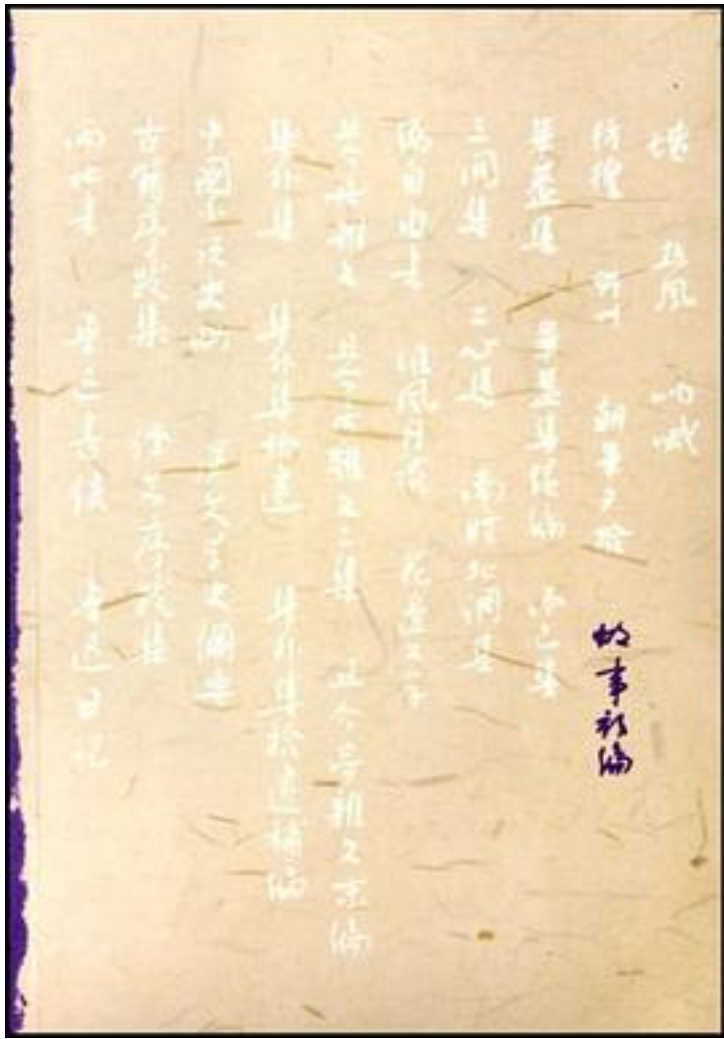 坟 热風 呐喊
彷徨 野草 朝華夕拾 故事新编
華盖集 華盖集续编 而已集
三闲集 二心集 南腔北调集
伪自由书 准风月谈 花边文学
且介亭雜文 且介亭雜文二集 且介亭雜文末编
集外集 集外集拾遗 集外集拾遗補编
中國小说史略 汉文学史纲要
古籍序跋集 译文序跋集
两地书 鲁迅书信 鲁迅日记